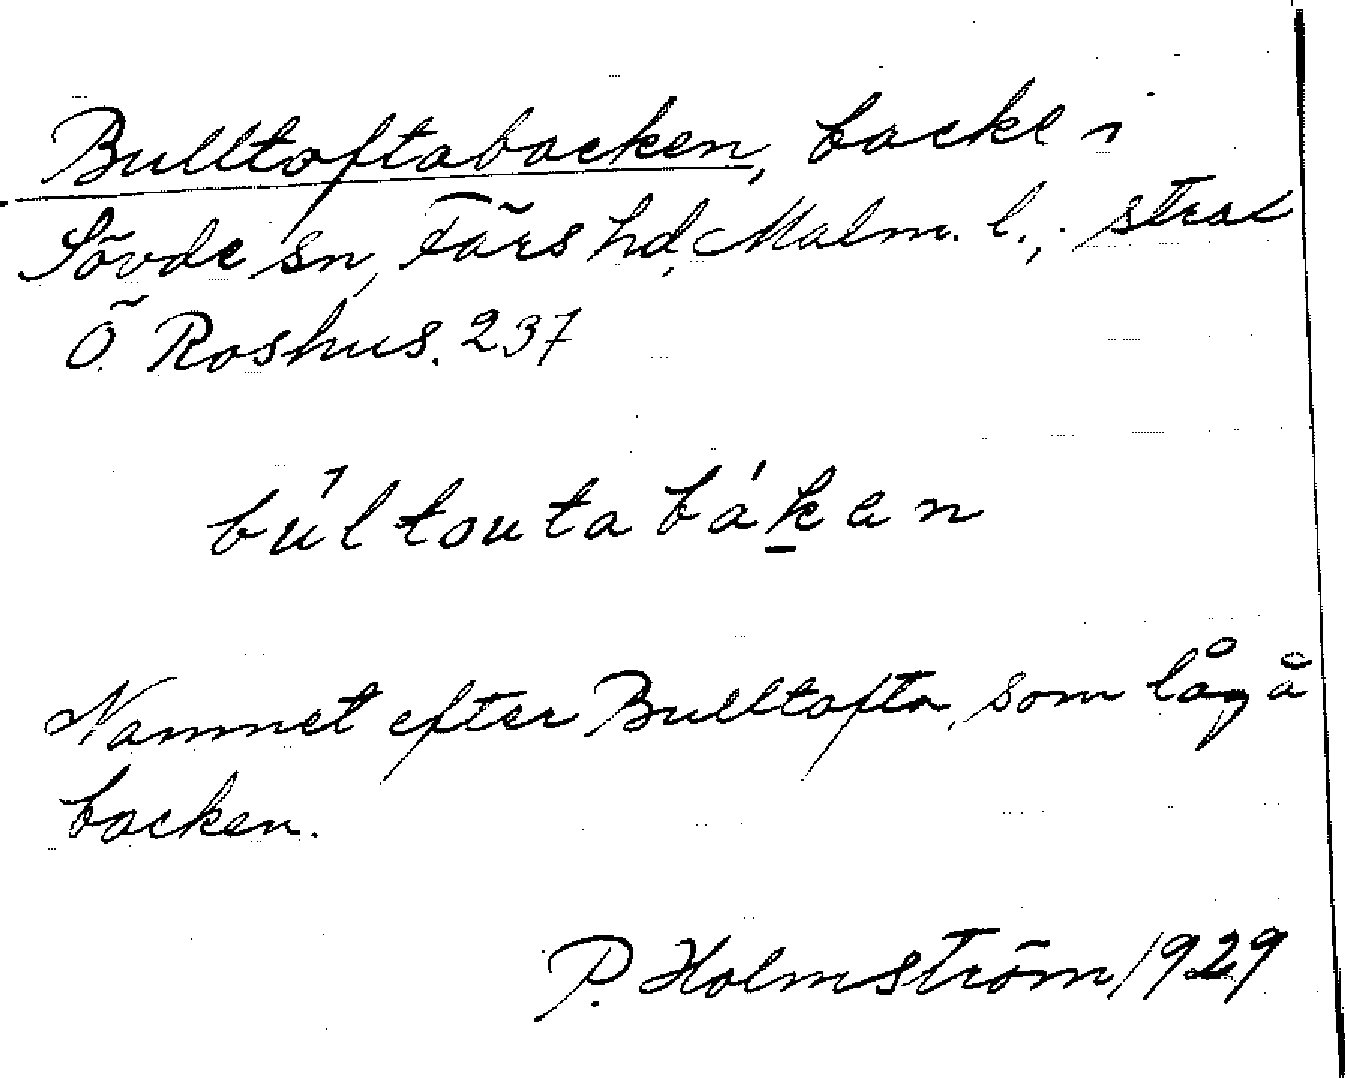 Bulltoftabacken, backe i
Sövde sn, Färs hd, Malm. l., strax
Ö. Roshus. 237
bu̍ltoutabák̠an
Namnet efter Bulltofta, som låg å
backen.
P. Holmström 1929